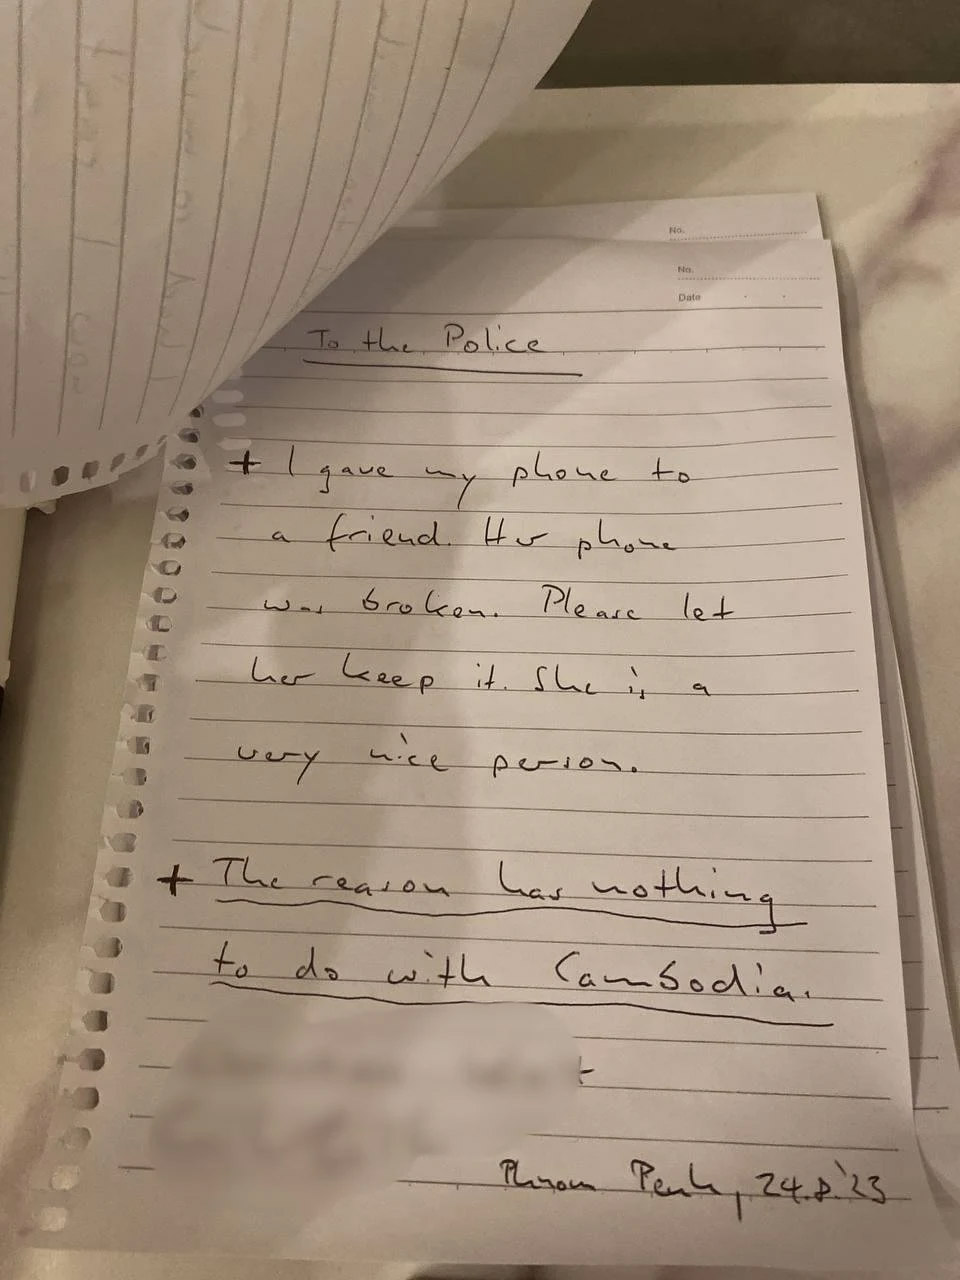 No.
No.
Date
To the Police
+ I gave my phone to
a friend. Her phone
was broken. Please let
her keep it. She is a
very nice person.
+ The reason has nothing
to do with Cambodia.
Phnom Penh, 24.8.'23